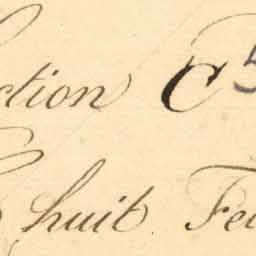 ction C 5
huit Feu